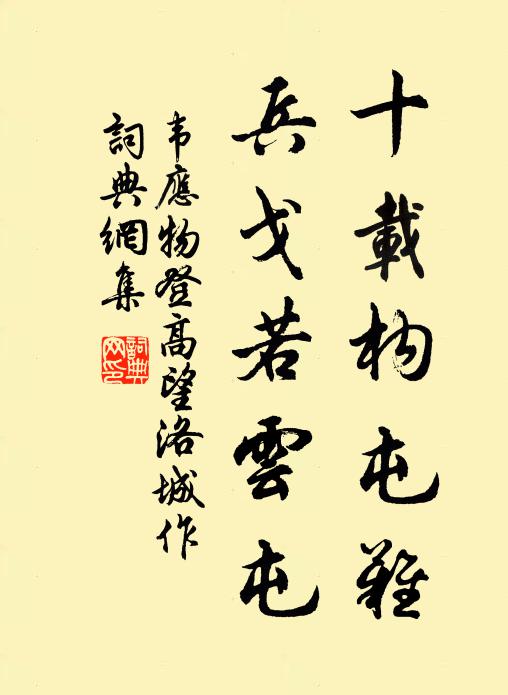 十載构屯難
兵戈若雲屯
韦應物登高望洛城作
詞典網集
詞典网印